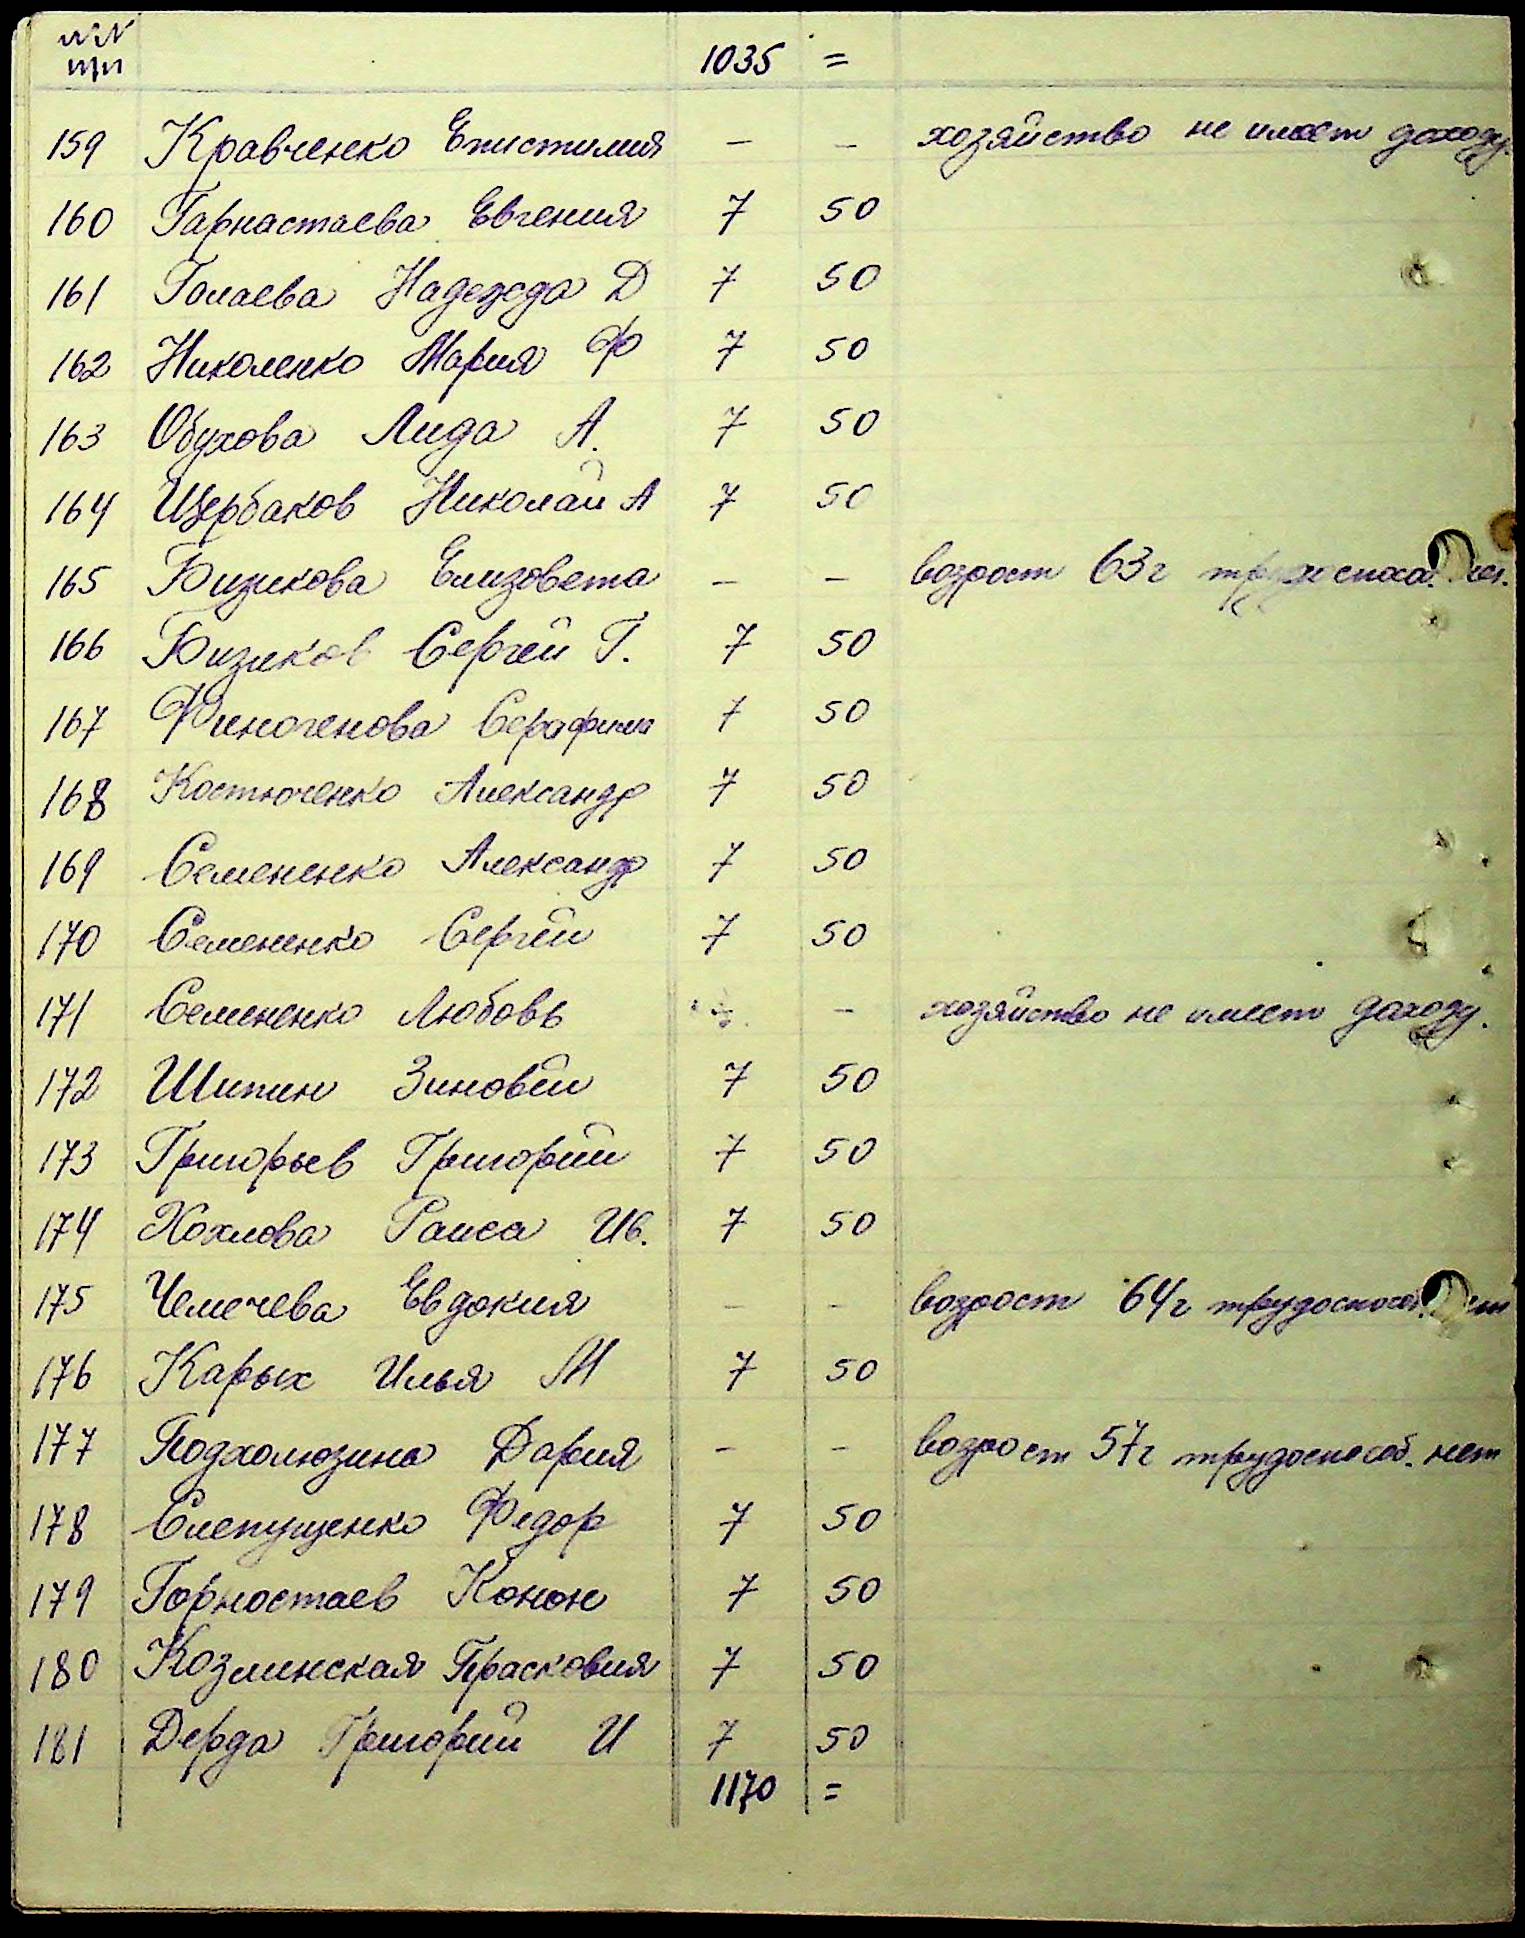 №№
п/п 1035 =
159 Кравченко Епистимия – – хозяйство не имеет доходу.
160 Гарнастаева Евгения 7 50
161 Голаева Надежда Д 7 50
162 Николенко Мария Ф 7 50
163 Обухова Лида А. 7 50
164 Щербаков Николай А 7 50
165 Бизикова Елизовета – – возрост 63г
166 Бизиков Сергей Г. 7 50
167 Финогенова Серафима 7 50
168 Костюченко Александр 7 50
169 Семененко Александр 7 50
170 Семененко Сергей 7 50
171 Семененко Любовь – хозяйство не имеет доходу.
172 Шипин Зиновей 7 50
173 Григорьев Григорий 7 50
174 Хохлова Раиса Ив. 7 50
175 Чемечева Евдокия – – возрост 64г трудоспособ.
176 Карых Илья М 7 50
177 Подхолюзина Дария – – возрост 57г трудоспособ. нет
178 Слепущенко Федор 7 50
179 Горностаев Конон 7 50
180 Козлинская Прасковия 7 50
181 Дерда Григорий И 7 50
1170 =